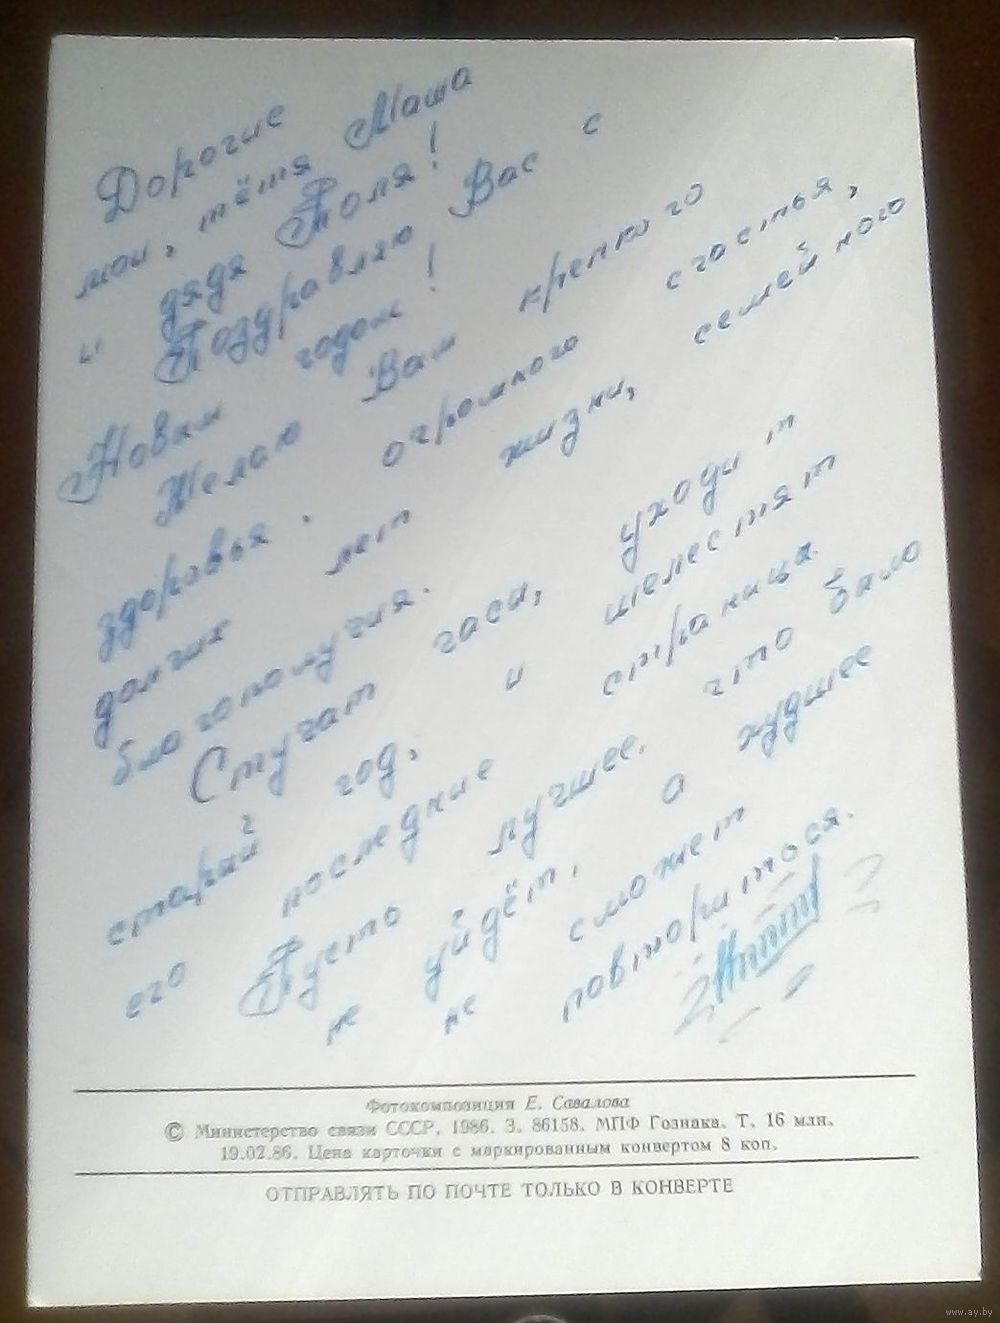 Дорогие
мои, тётя Маша
и дядя Толя!
Поздравляю Вас с
Новым годом!
Желаю Вам крепкого
здоровья. огромного счастья,
долгих лет жизни, семейного
благополучия.
Стучат часы, уходит
старый год, и шелестят
его последние страница.
Пусть лучшее, что было
не уйдёт, а худшее
не сможет
повториться.
Фотокомпозиция Е. Савалова
© Министерство связи СССР, 1986. З. 86158. МПФ Гознака. Т. 16 млн.
19.02.86. Цена карточки с маркированным конвертом 8 коп.
ОТПРАВЛЯТЬ ПО ПОЧТЕ ТОЛЬКО В КОНВЕРТЕ
www.ay.by